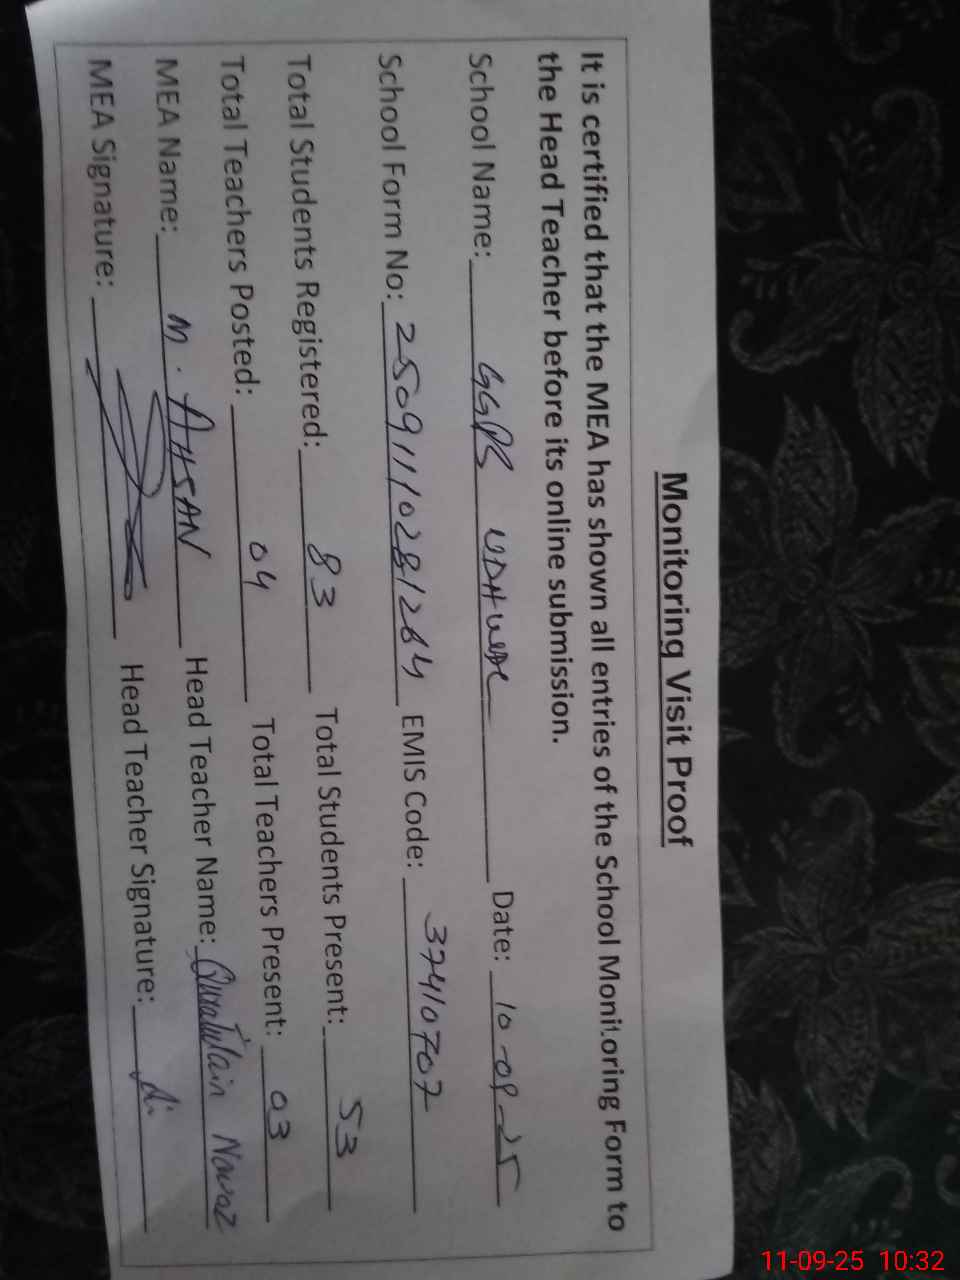 Monitoring Visit Proof
It is certified that the MEA has shown all entries of the School Monitoring Form to
the Head Teacher before its online submission.
School Name: GGPS UDHWAL Date: 10-09-25
School Form No: 25091110281264 EMIS Code: 37410707
Total Students Registered: 83 Total Students Present: 53
Total Teachers Posted: 04 Total Teachers Present: 03
MEA Name: M. AHSAN Head Teacher Name: Quratulain Nawaz
MEA Signature: Head Teacher Signature:
11-09-25 10:32